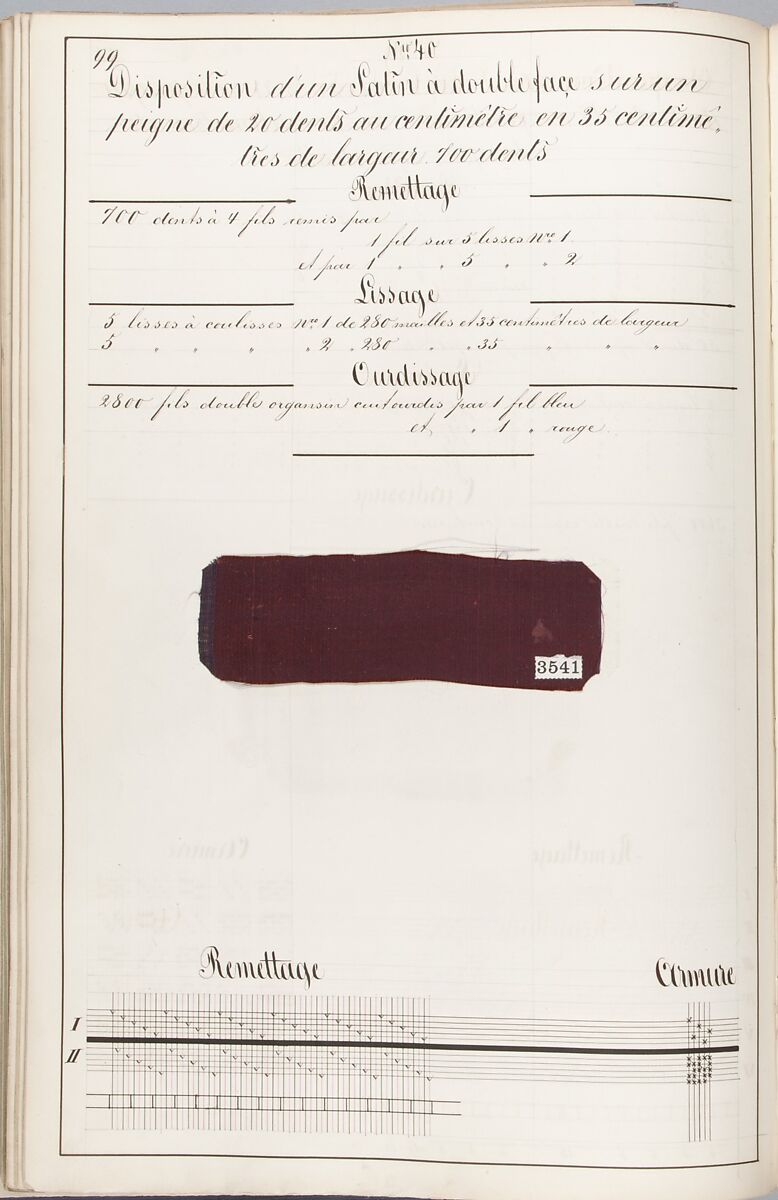 99
Nro 40
Disposition d'un Satin à double façe sur un
peigne de 20 dents au centimètre en 35 centimè-
tres de largeur. 700 dents
Remettage
700 dents à 4 fils remis par
1 fil sur 5 lisses Nro 1
et par 1 " " 5 " " 2
Lissage
5 lisses à coulisses Nro 1 de 280 mailles et 35 centimètres de largeur
5 " " " " 2 " 280 " " 35 " " "
Ourdissage
2800 fils double organsin cuit ourdis par 1 fil bleu
et " 1 " rouge.
3541
Remettage
Armure
I
II